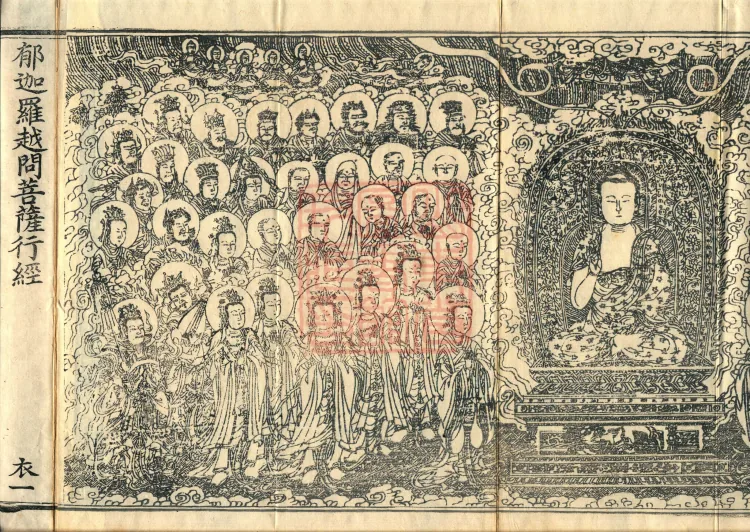 郁迦羅越問菩薩行經
衣一